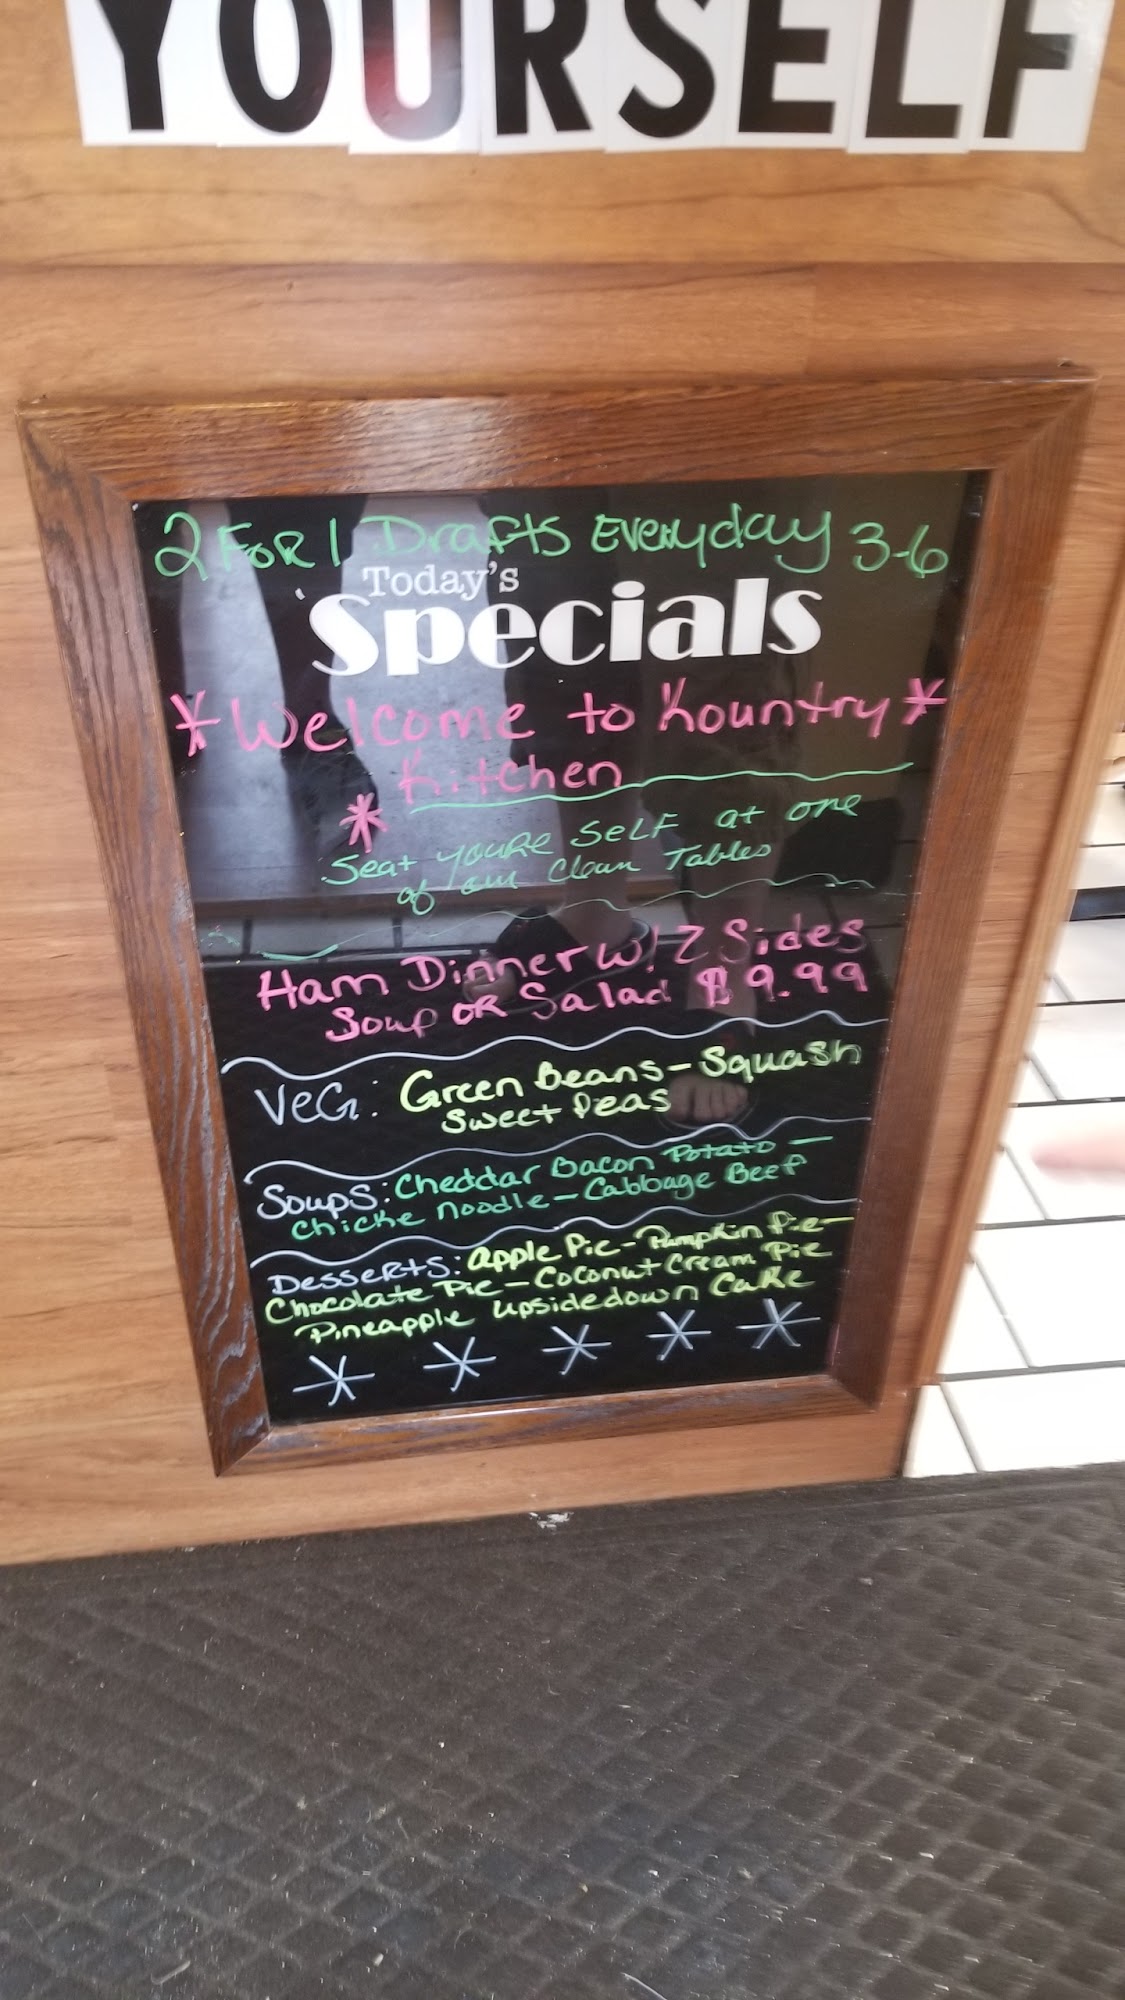 YOURSELF
2 FOR 1 Drafts Everyday 3-6
Today's
Specials
*Welcome to Kountry*
Kitchen
*
Seat youRe SelF at one
of our Clean Tables
Ham Dinner w/ 2 Sides
Soup OR Salad $9.99
VeG: Green Beans - Squash
Sweet Peas
Soups: Cheddar Bacon Potato -
Chicke noodle - Cabbage Beef
Desserts: Apple Pie - Pumpkin Pie -
Chocolate Pie - Coconut Cream Pie
Pineapple upsidedown Cake
* * * * *